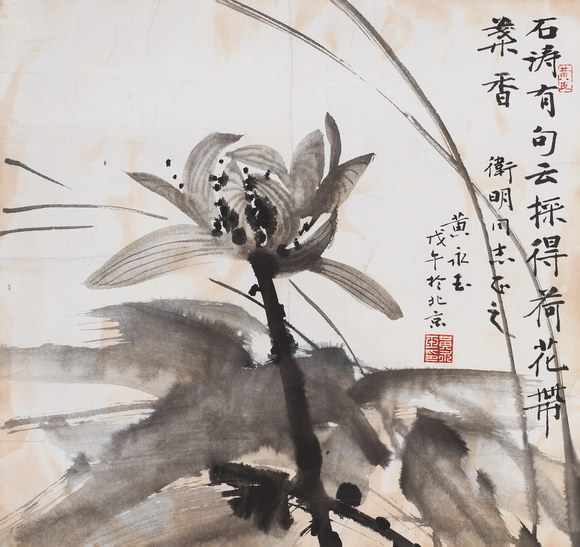 石涛有句云採得荷花帶
葉香
衛明同志正之
黄永玉
戊午於北京